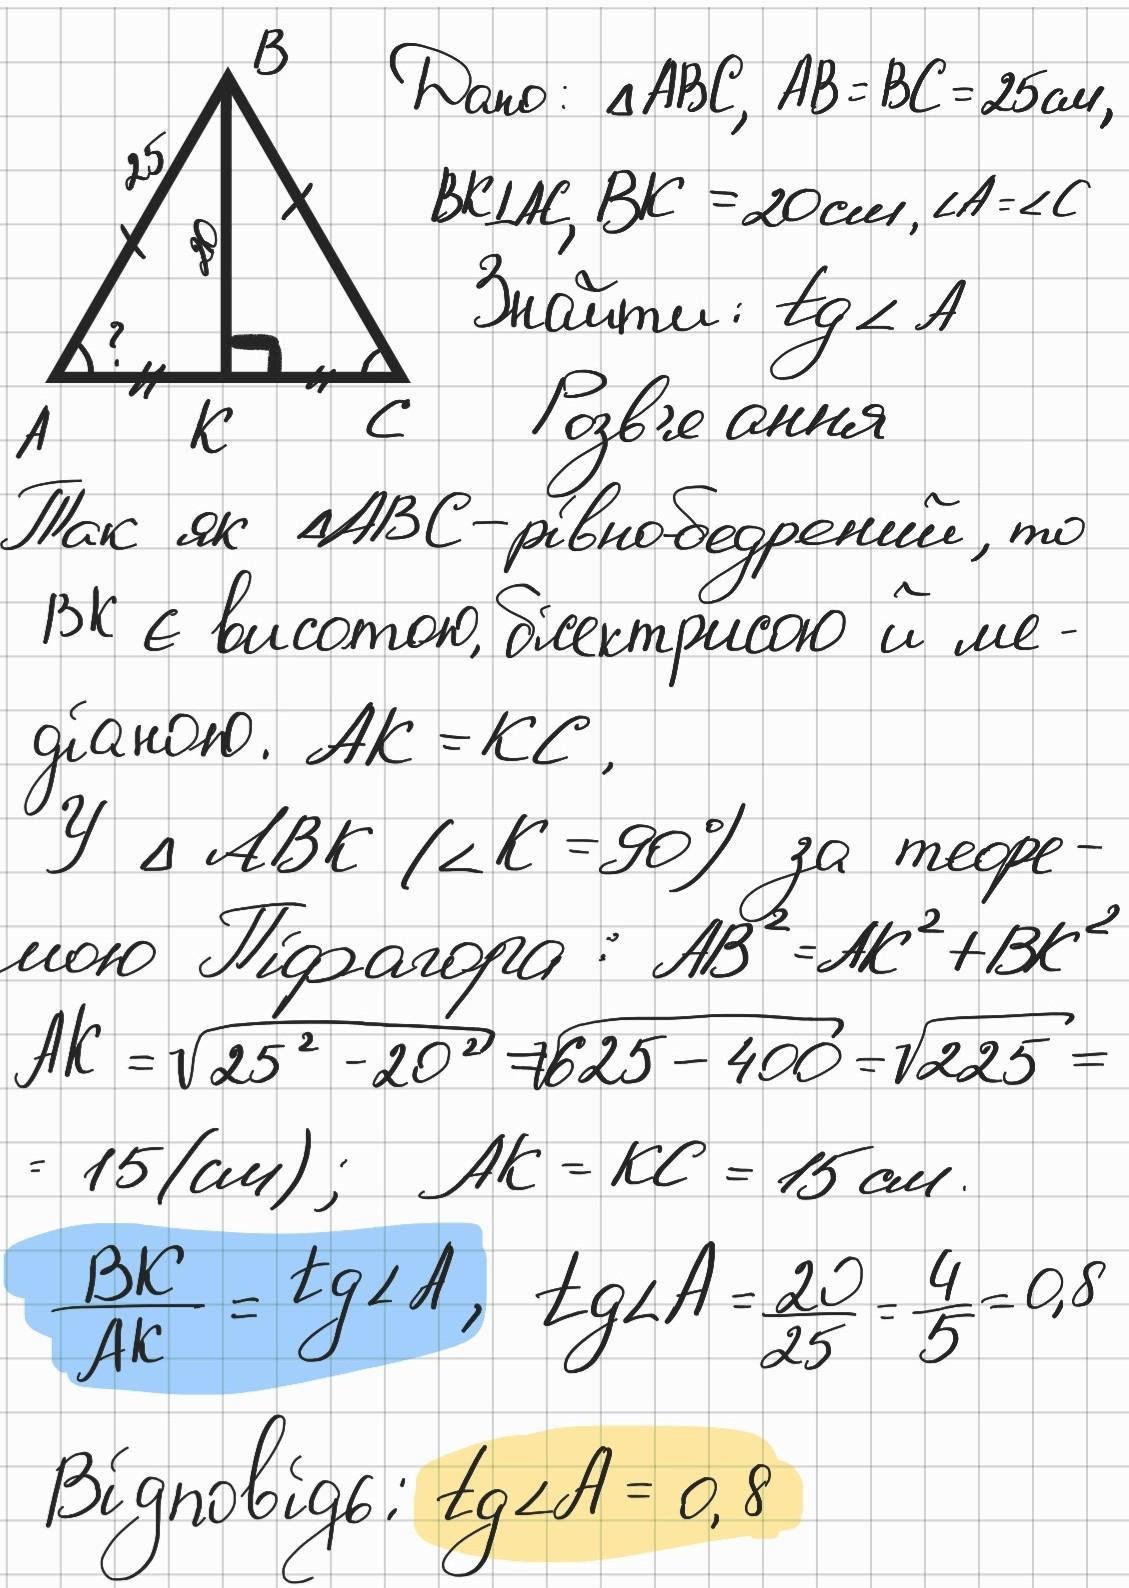 B
Дано: △ABC, AB=BC=25см,
25
BK⊥AC, BK=20см, ∠A=∠C
20
Знайти: tg∠A
?
A K C
Розв'язання
Так як △ABC-рівнобедрений, то
BK є висотою, бісектрисою й ме-
діаною. AK=KC,
У △ABK (∠K=90°) за теоре-
мою Піфагора: AB²=AK²+BK²
AK=√25²-20²=√625-400=√225=
=15(см); AK=KC=15см.
BK/AK=tg∠A, tg∠A=20/25=4/5=0,8
Відповідь: tg∠A=0,8